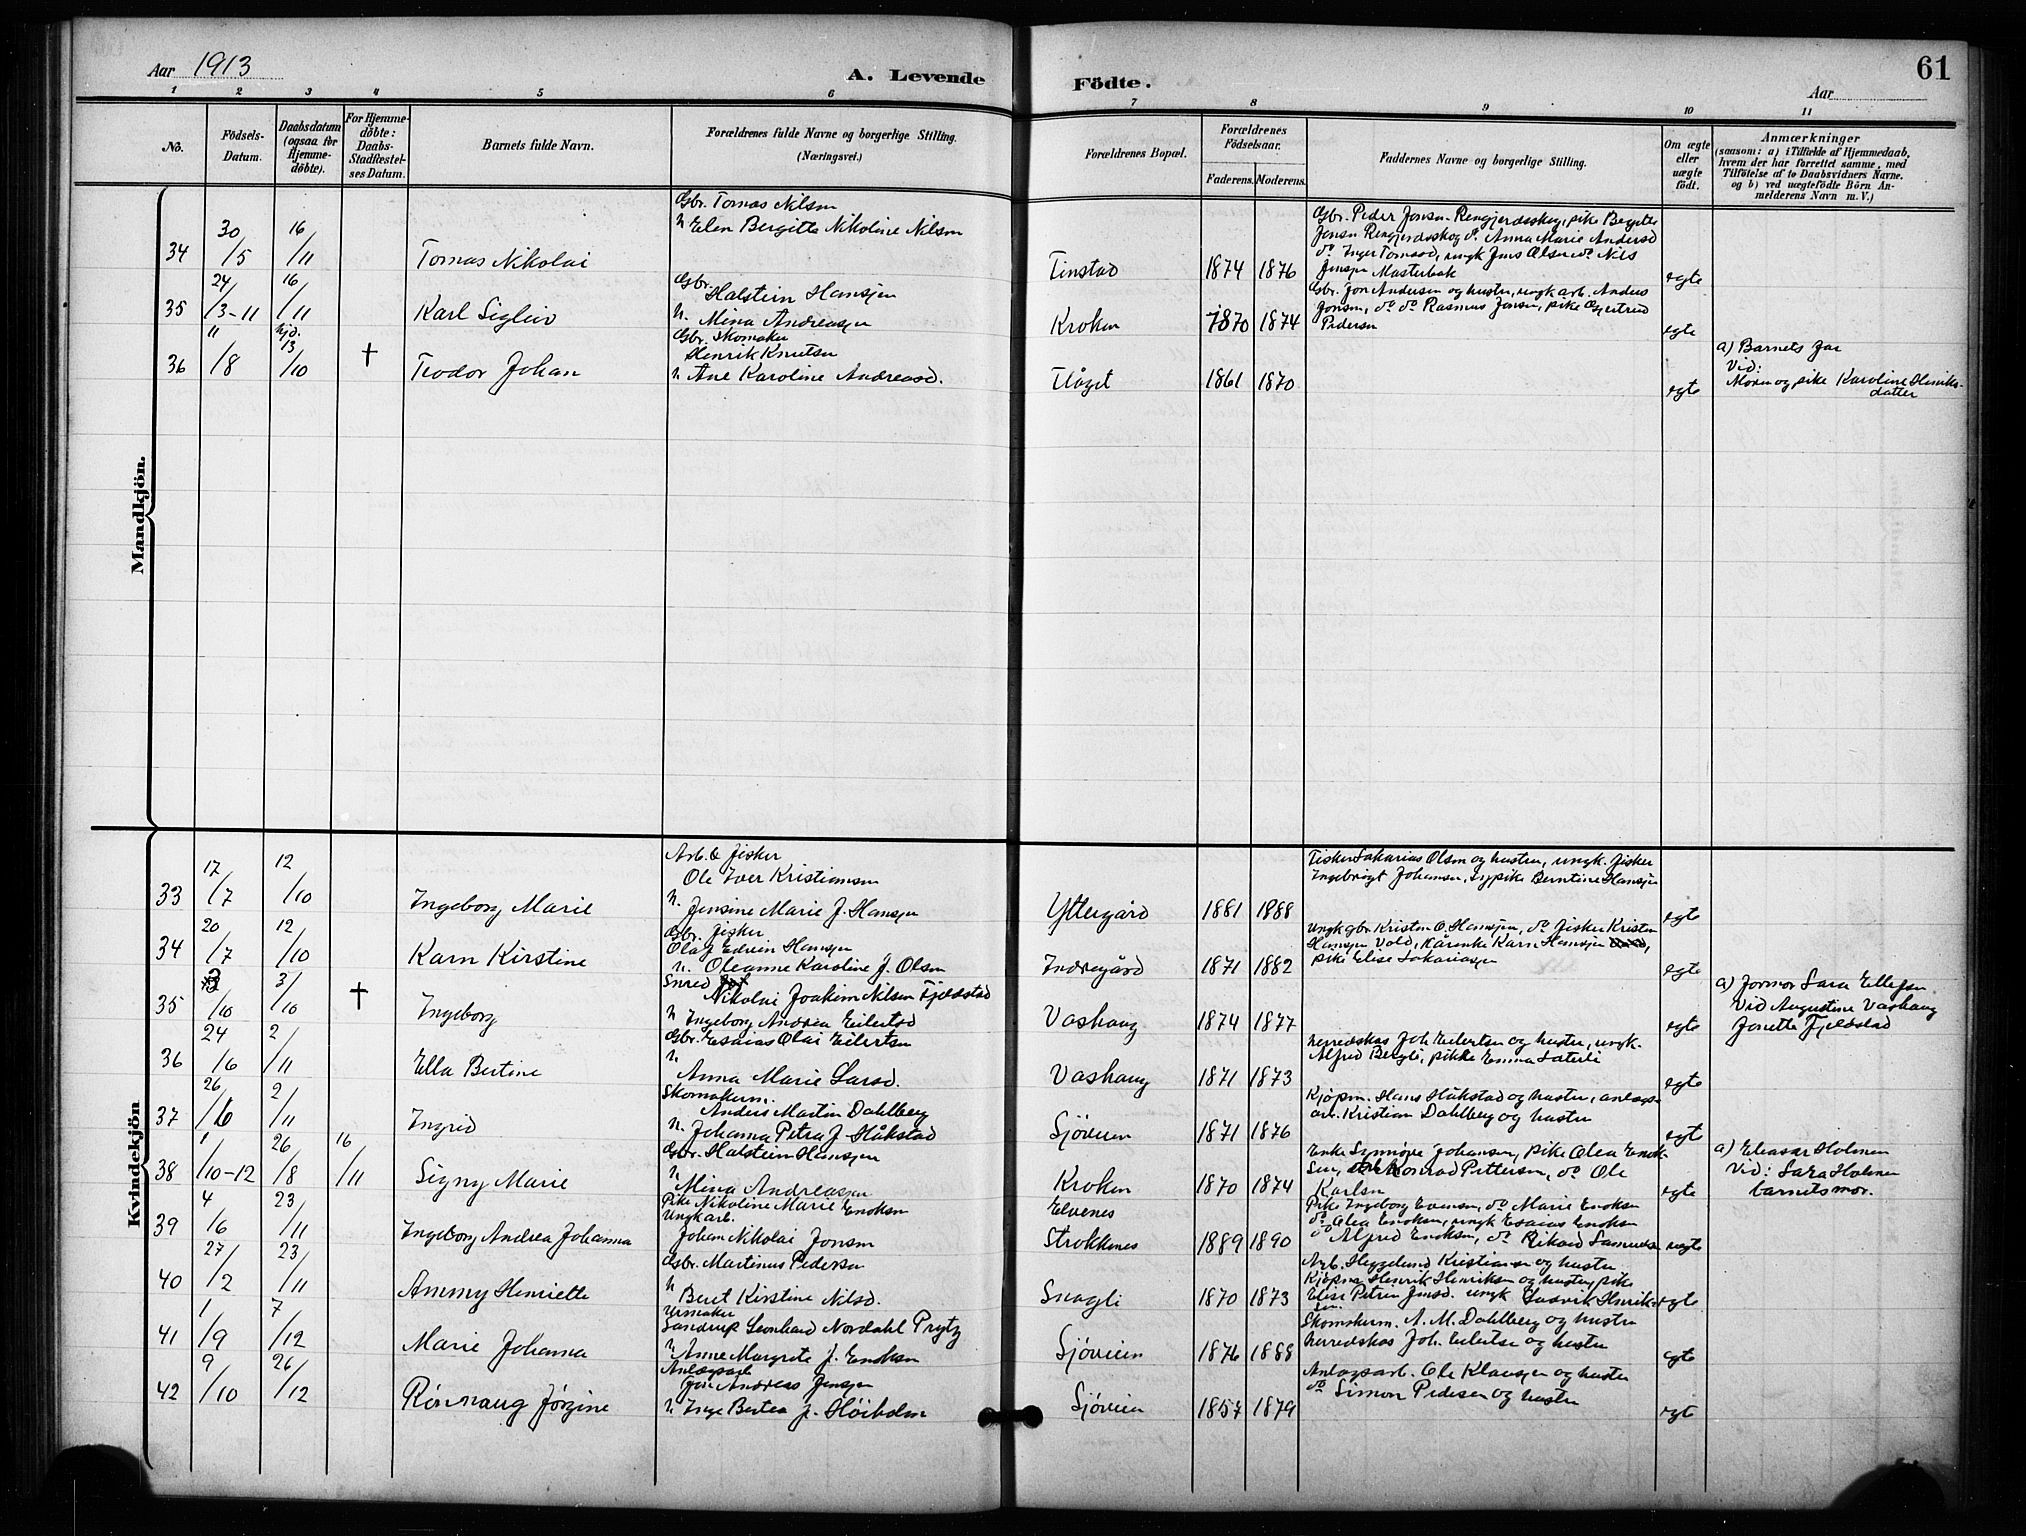 Aar 1913
A. Levende Födte.
61
Aar
1 2 3 4 5 6 7 8 9 10 11
No.
Födsels-Datum.
Daabsdatum (ogsaa for Hjemme-döbte).
For Hjemme-döbte: Daabs-Stadfæstel-ses Datum.
Barnets fulde Navn.
Forældrenes fulde Navne og borgerlige Stilling.
(Næringsvei.)
Forældrenes Bopæl.
Forældrenes Födselsaar.
Faderens. Moderens.
Faddernes Navne og borgerlige Stilling.
Om ægte eller uægte födt.
Anmærkninger
(saasom: a) i Tilfælde af Hjemmedaab,
hvem der har forrettet samme, med
Tilföielse af to Daabsvidners Navne.
og b) ved uægtefödte Börn An-
melderens Navn m. V.)
Mandkjön.
34 30/5 16/11 Tomas Nikolai
Gbr. Tomas Nilsen
h. Elen Bergitte Nikoline Nilsen
Tinstad 1874 1876
Gbr. Peder Jensen Rengjerdsskog, pike Bergitte
Jensen Rengjerdsskog do Anna Marie Andersd
do Inger Tomasd, ungk Jens Olsen do Nils
Jensen Masterbak
egte
35 24/3-11 16/11 Karl Sigleiv
Gbr. Halstein Hansen
h. Mina Andreasen
Kroken 1870 1874
Gbr. Jon Andersen og hustru, ungk arb. Anders
Jonsen, do do Rasmus Jensen, pike Gjertrud
Pedersen
egte
36 11/8 hjd. 13/10 † Teodor Johan
Gbr. Skomaker
Henrik Knutsen
h. Ane Karoline Andreasd.
Flåget 1861 1870
egte
a) Barnets far
Vid:
Moren og pike Karoline Henriks-
datter
Kvindekjön
33 17/7 12/10 Ingeborg Marie
Arb. & fisker
Ole Iver Kristiansen
h. Jensine Marie J. Hansen
Yttergård 1881 1888
Fisker Sakarias Olsen og hustru, ungk. fisker
Ingebrigt Johansen, sypike Berntine Hansen
egte
34 20/7 12/10 Karn Kirstine
Gbr. fisker
Olaf Edvin Hansen
h. Oleanne Karoline J. Olsen
Indregård 1871 1882
Ungk gbr Kristen O. Hansen, do fisker Kristen
Hansen Vold, Kårenke Karn Hansen
pike Elise Sakariasen
egte
35 3/10 3/10 † Ingeborg
Snred
Nikolai Joakim Nilsen Fjeldstad
h Ingeborg Andrea Eilertsd
Vashaug 1874 1877
egte
a) Jormor Sara Ellefsen
Vid Augustine Vashaug
Jonette Fjeldstad
36 24/6 2/11 Ella Bertine
Gbr. Esaias Olai Eilertsen
h
Anna Marie Larsd.
Vashaug 1871 1873
Herredskas Joh Eilertsen og hustru, ungk.
Alfred Bergli, pike Emma Saterli
egte
37 26/6 2/11 Ingrid
Skomakerm.
Anders Martin Dahlberg
h. Johanna Petra J. Håkstad
Sjøveien 1871 1876
Kjøpm. Hans Håkstad og hustru, anlægs-
arb. Kristian Dahlberg og hustru
egte
38 1/10-12 26/8 16/11 Signy Marie
Gbr. Halstein Hansen
h
Mina Andreasen
Kroken 1870 1874
Enke Synnøve Johansen, pike Olea Enok-
sen, Konrad Pettersen, do Ole
Karlsen
egte
a) Eleasar Holmen
Vid: Sara Holmen
barnets mor.
39 4/6 23/11 Ingeborg Andrea Johanna
Pike Nikoline Marie Enoksen
Ungk arb.
Johan Nikolai Jensen
Elvenes
Strokkenes 1889 1890
Pike Ingeborg Evensen, do Marie Enoksen
do Olea Enoksen, ungk Esaias Enoksen
do Alfred Enoksen, do Rikard Samuelsen
uegte
40 27/2 23/11 Ammy Henriette
Gbr. Martinus Pedersen
h
Beret Kirstine Nilsd.
Snogli 1870 1873
Arb. Heggelund Kristiansen og hustru
Kjøpm Henrik Henriksen og hustru, pike
Elise Petrea Jensd. ungk Ludvik Henrik-
sen.
egte
41 1/9 7/12 Marie Johanna
Urmaker
Sandrup Leonhard Nordahl Prytz
h Anne Margrete J. Enoksen
Sjøveien 1876 1888
Skomakerm. A. M. Dahlberg og hustru
Herredskas Joh. Eilertsen og hustru
egte
42 9/10 26/12 Rønnaug Jørgine
Anlægsarb
Andreas Jensen
h Inge Bertea J. Høiholm
Sjøveien 1857 1879
Anlægsarb. Ole Klausen og hustru
do Simon Pedersen og hustru
egte